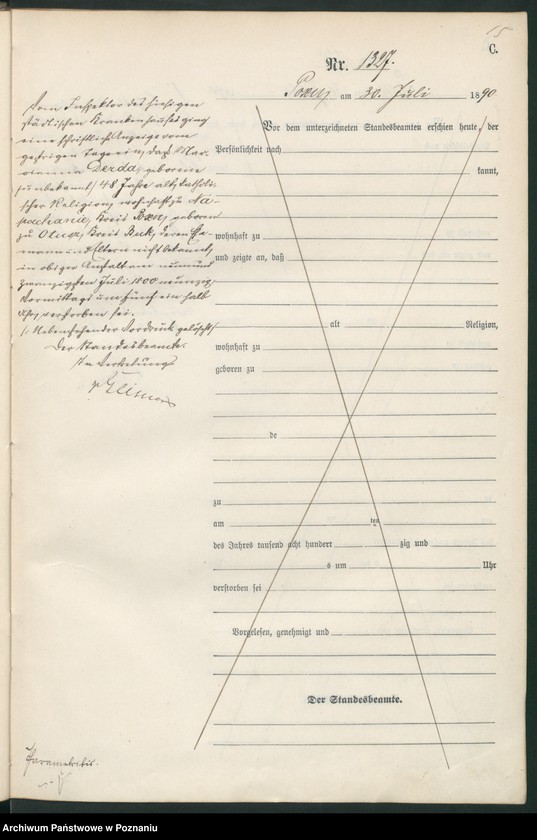 15
C.
Nr. 1327.
Posen, am 30. Juli 1890
Vom Inspektor des hiesigen
städtischen Krankenhauses ging
eine schriftliche Anzeige vom
gestrigen Tage ein, daß Mar-
ianna Derda, geborene
unbekannt, 48 Jahre alt, katholi-
scher Religion, wohnhaft zu Na-
pachanie, Kreis Posen, geboren
zu Kreis Buk, deren Ehe-
mann und Eltern nicht bekannt,
in obiger Anstalt am neunund
zwanzigsten Juli 1800 neunzig
Vormittags um fünf ein halb
Uhr verstorben sei.
/: Nebenstehender Vordruck gelöscht /
Der Standesbeamte.
In Vertretung
Vor dem unterzeichneten Standesbeamten erschien heute, der
Persönlichkeit nach
kannt,
wohnhaft zu
und zeigte an, daß
alt Religion,
wohnhaft zu
geboren zu
de
zu
am ten
des Jahres tausend acht hundert zig und
s um Uhr
verstorben sei
Vorgelesen, genehmigt und
Der Standesbeamte.
Parametritis.
Archiwum Państwowe w Poznaniu